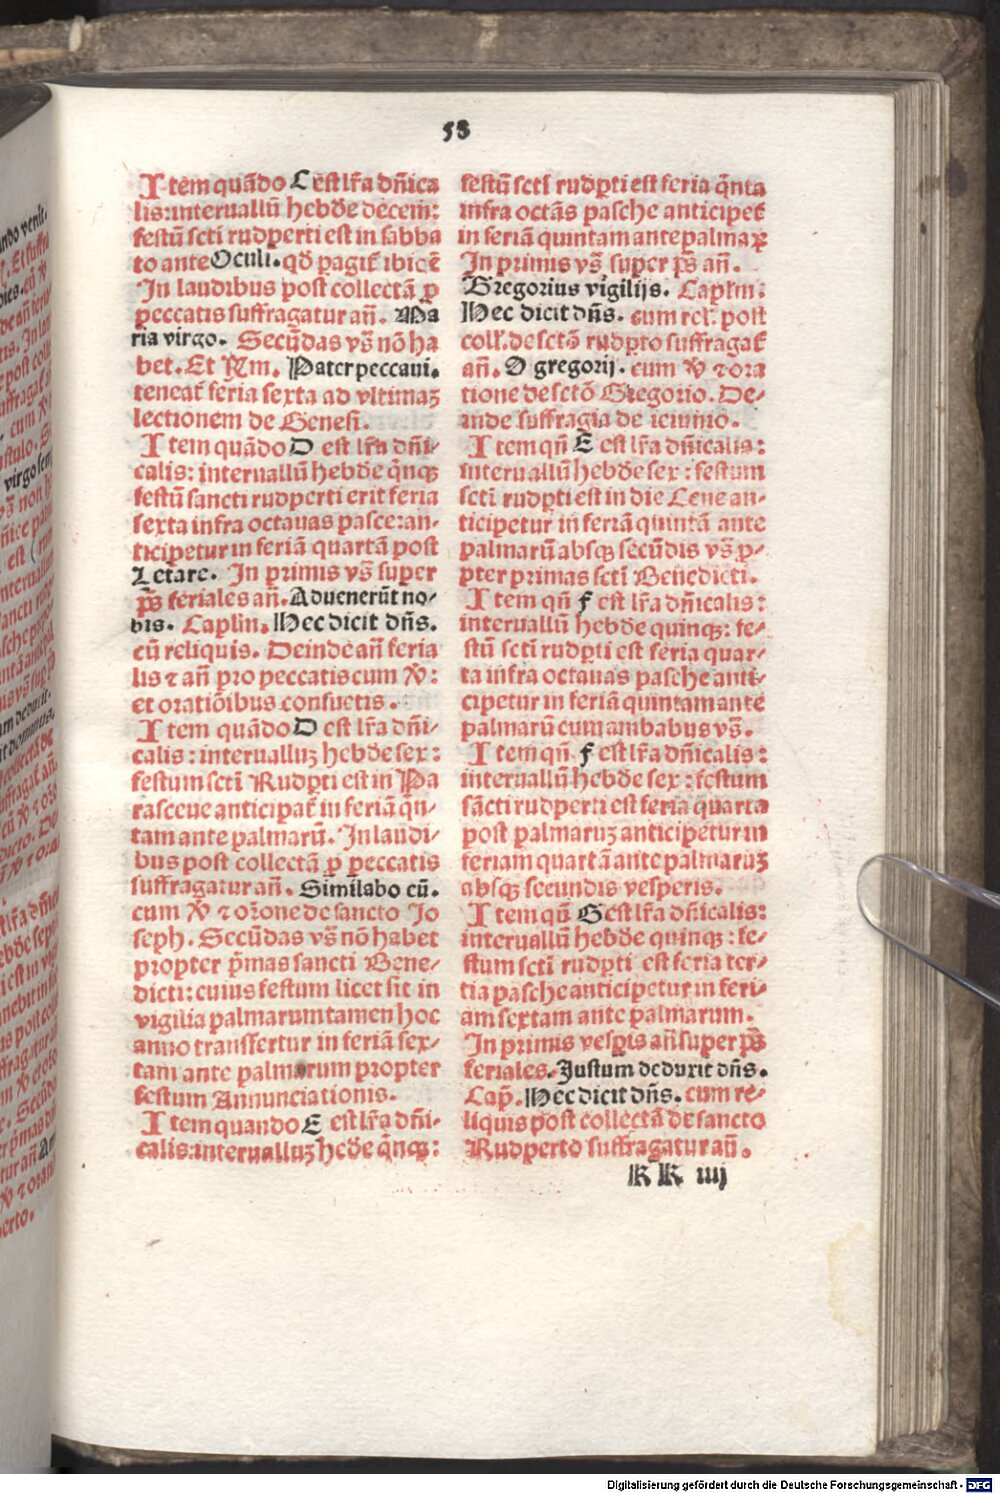 58
Item quãdo C est lr̃a dñica
lis: interuallũ hebde decem:
festũ scti rudperti est in sabba
to ante Oculi. qđ pagit̃ ibicẽ
In laudibus post collectã ꝓ
peccatis suffragatur añ. Ma
ria virgo. Secũdas vs̃ nõ ha
bet. Et Rm. Pater peccaui.
teneat̃ feria sexta ad vltimaꝫ
lectionem de Genesi.
Item quãdo D est lr̃a dñi-
calis: interuallũ hebde q̃nqꝫ
festũ sancti rudperti erit feria
sexta infra octauas pasce: an-
ticipetur in feriã quartã post
Letare. In primis vs̃ super
ps̃ feriales añ. Aduenerũt no-
bis. Caplm̃. Hec dicit dñs.
cũ reliquis. Deinde añ feria
lis ⁊ añ pro peccatis cum V̕:
et oratiõibus consuetis.
Item quãdo D est lr̃a dñi-
calis: interualluꝫ hebde sex:
festum scti Rudp̱ti est in Pa
rasceue anticipat̃ in feriã q̃n-
tam ante palmarũ. In laudi-
bus post collectã ꝓ peccatis
suffragatur añ. Simílabo eũ.
cum V̕ ⁊ orõne de sancto Jo
seph. Secũdas vs̃ nõ habet
propter p̃mas sancti Bene-
dicti: cuius festum licet sit in
vigilia palmarum tamen hoc
anno transfertur in feriã sex-
tam ante palmarum propter
festum Annunciationis.
Item quando E est lr̃a dñi-
calis: interualluꝫ hebde q̃nqꝫ:
festũ scti rudp̱ti est feria q̃nta
infra octãs pasche anticipet̃
in feriã quintam ante palmaꝝ
In primis vs̃ super ps̃ añ.
Gregorius vigilijs. Caplm̃.
Hec dicit dñs. cum rel̕. post
coll̕. de sctõ rudp̱to suffragat̃
añ. O gregorij. cum V̕ ⁊ ora
tione de sctõ Gregorio. De-
inde suffragia de ieiunio.
Item qñ E est lr̃a dñicalis:
interuallũ hebde sex: festum
scti rudp̱ti est in die Cene an-
ticipetur in feriã quintã ante
palmarũ absqꝫ secũdis vs̃ ꝓ-
pter primas scti Benedicti.
Item qñ f est lr̃a dñicalis:
interuallũ hebde quinqꝫ: fe-
stũ scti rudp̱ti est feria quar-
ta infra octauas pasche anti-
cipetur in feriã quintam ante
palmarũ cum ambabus vs̃.
Item qñ f est lr̃a dñicalis:
interuallũ hebde sex: festum
sãcti rudperti est feria quarta
post palmaruꝫ anticipetur in
feriam quartã ante palmaruꝫ
absqꝫ secundis vesperis.
Item qñ G est lr̃a dñicalis:
interuallũ hebde quinqꝫ: fe-
stum scti rudp̱ti est feria ter-
tia pasche anticipetur in feri-
am sextam ante palmarum.
In primis vesp̱is añ super ps̃
feriales. Justum deduxit dñs.
Cap̃. Hec dicit dñs. cum re-
liquis post collectã de sancto
Rudperto suffragatur añ.
KK iiij
Digitalisierung gefördert durch die Deutsche Forschungsgemeinschaft - DFG